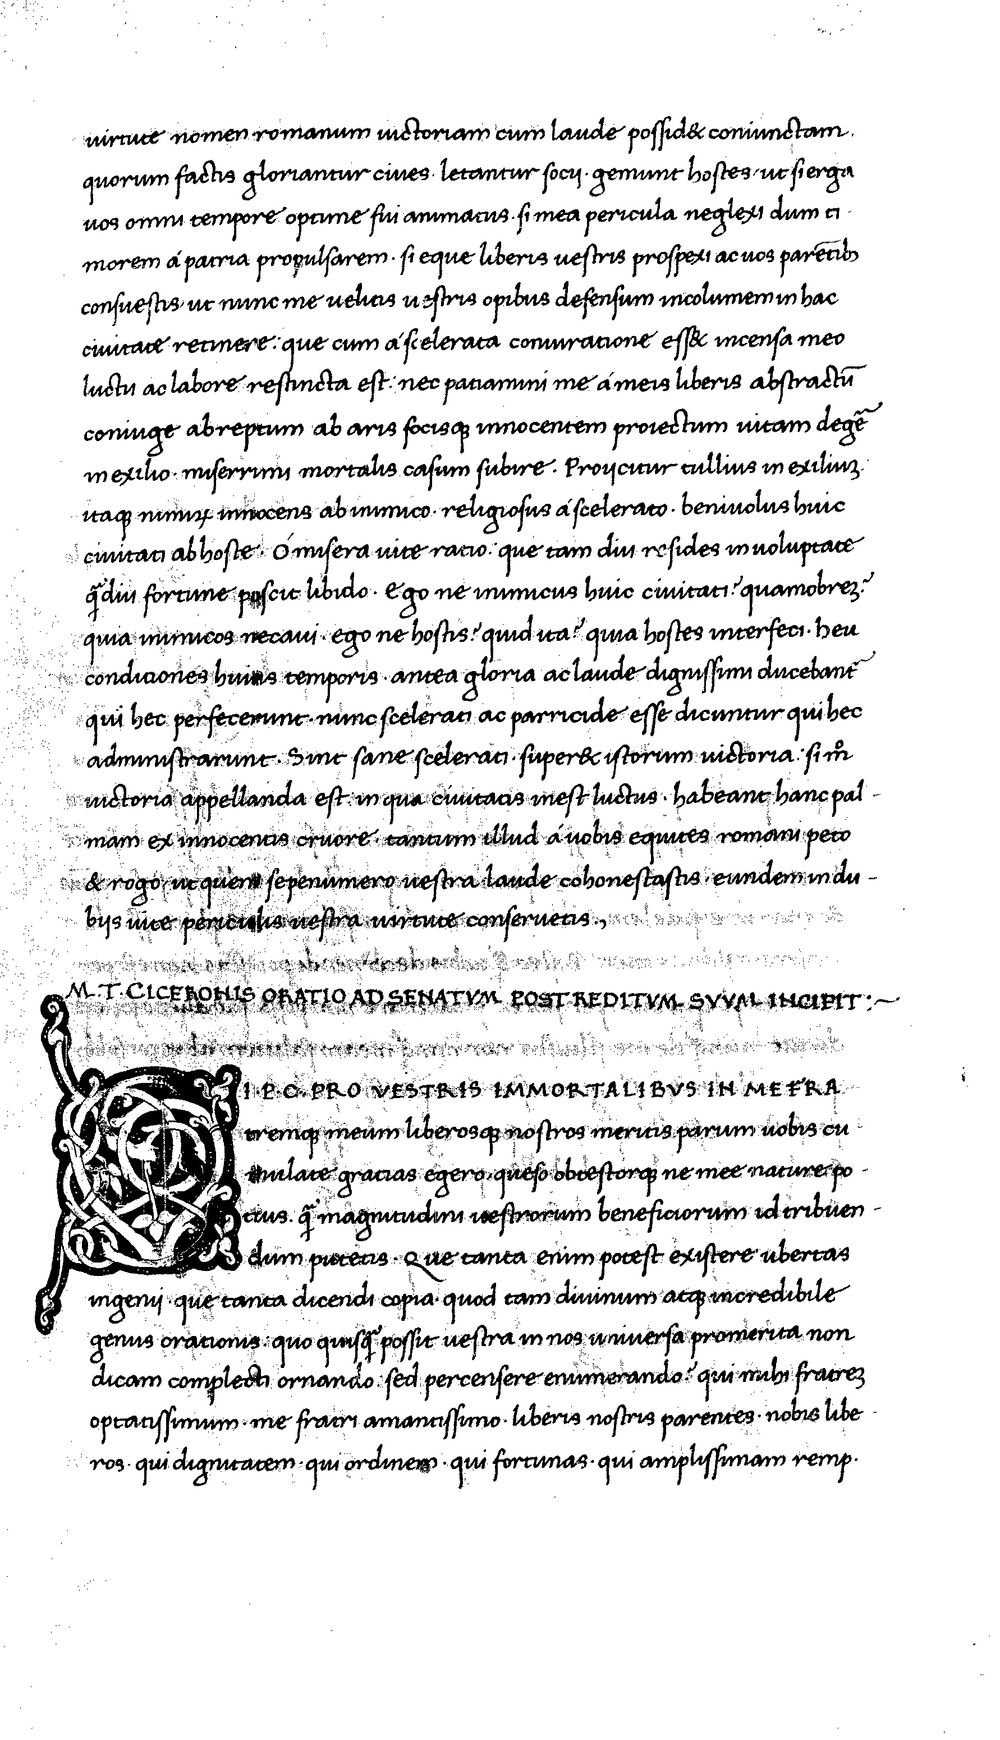 virtute nomen romanum victoriam cum laude possid& coniunctam.
quorum factis gloriantur cives· letantur socij· gemunt hostes· ut si erga
vos omni tempore optime fui animatus· si mea pericula neglexi dum ti-
morem á patria propulsarem· si eque liberis vestris prospexi ac vos parētib;
consuestis· ut nunc me velitis vestris opibus defensum incolumem in hac
civitate retinere: que cum á scelerata coniuratione ess& incensa meo
luctu ac labore restincta est: nec patiamini me á meis liberis abstractū
coniuge abreptum ab aris focisq; innocentem proiectum vitam degē
in exilio· miserrimi mortalis casum subire. Proijcitur tullius in exiliuꝫ
itaq; nimiꝝ innocens ab inimico· religiosus á scelerato· benivolus huic
civitati ab hoste· Ó misera vite ratio: que tam diu resides in voluptate
q̄diu fortune poscit libido· Ego ne inimicus huic civitati? quamobreꝫ?
quia inimicos necavi· ego ne hostis? quid ita? quia hostes interfeci· heu
condiciones huius temporis· antea gloria ac laude dignissimi ducebant̄
qui hec perfecerunt· nunc scelerati ac parricide esse dicuntur qui hec
administrarunt· Sint sane scelerati· super& istorum victoria: si m̊
victoria appellanda est· in qua civitatis inest luctus· habeant hanc pal-
mam ex innocentis cruore· tantum illud á vobis equites romani peto
& rogo· ut quem sepenumero vestra laude cohonestastis· eundem in du-
bijs vite periculis vestra virtute conservetis.,
M·T·CICERONIS ORATIO AD SENATVM POST REDITVM SVVM INCIPIT:~
SI P·C· PRO VESTRIS IMMORTALIBVS IN ME FRA
tremq; meum liberosq; nostros meritis parum vobis cu
mulate gratias egero· queso obtestorq; ne mee nature po-
tius· q̄ magnitudini vestrorum beneficiorum id tribuen-
dum putetis· Que tanta enim potest existere ubertas
ingenij· que tanta dicendi copia· quod tam divinum atq; incredibile
genus orationis· quo quisq̄ possit vestra in nos universa promerita non
dicam complecti ornando· sed percensere enumerando? qui mihi fratreꝫ
optatissimum· me fratri amantissimo· liberis nostris parentes· nobis libe-
ros· qui dignitatem· qui ordinem· qui fortunas· qui amplissimam remp·